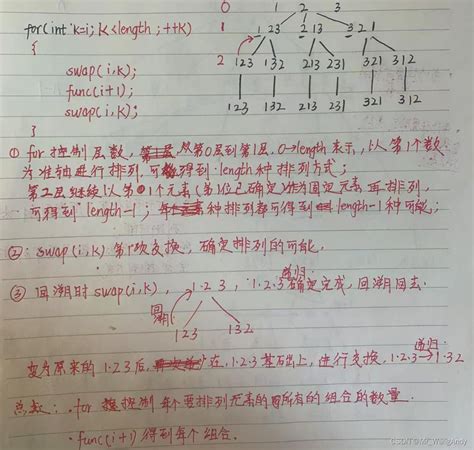 0 1 2 3
for(int k=i; k<length; ++k)
1 123 213 321
{
2 123 132 213 231 321 312
swap(i,k);
func(i+1);
swap(i,k);
123 132 213 231 321 312
}
① for 控制层数, 从第0层到第1层. 0→length 表示, 以第1个数
为准轴进行排列, 可得到 length 种排列方式;
第二层继续以第1个元素(第1位已确定)作为固定元素再排列,
可得到 length-1; 种排列都可得到 length-1 种可能;
②: swap(i,k) 第1次交换, 确定排列的可能.
③ 回溯时 swap(i,k), 1·2·3, 1·2·3 确定完成, 回溯回去.
递归:
回溯
123 132
变为原来的 1·2·3 后, 在 1·2·3 基础上, 进行交换, 1·2·3 → 1·32
递归
总结: ·for 控制每个要排列元素的所有的组合的数量.
·func(i+1) 得到每个组合.